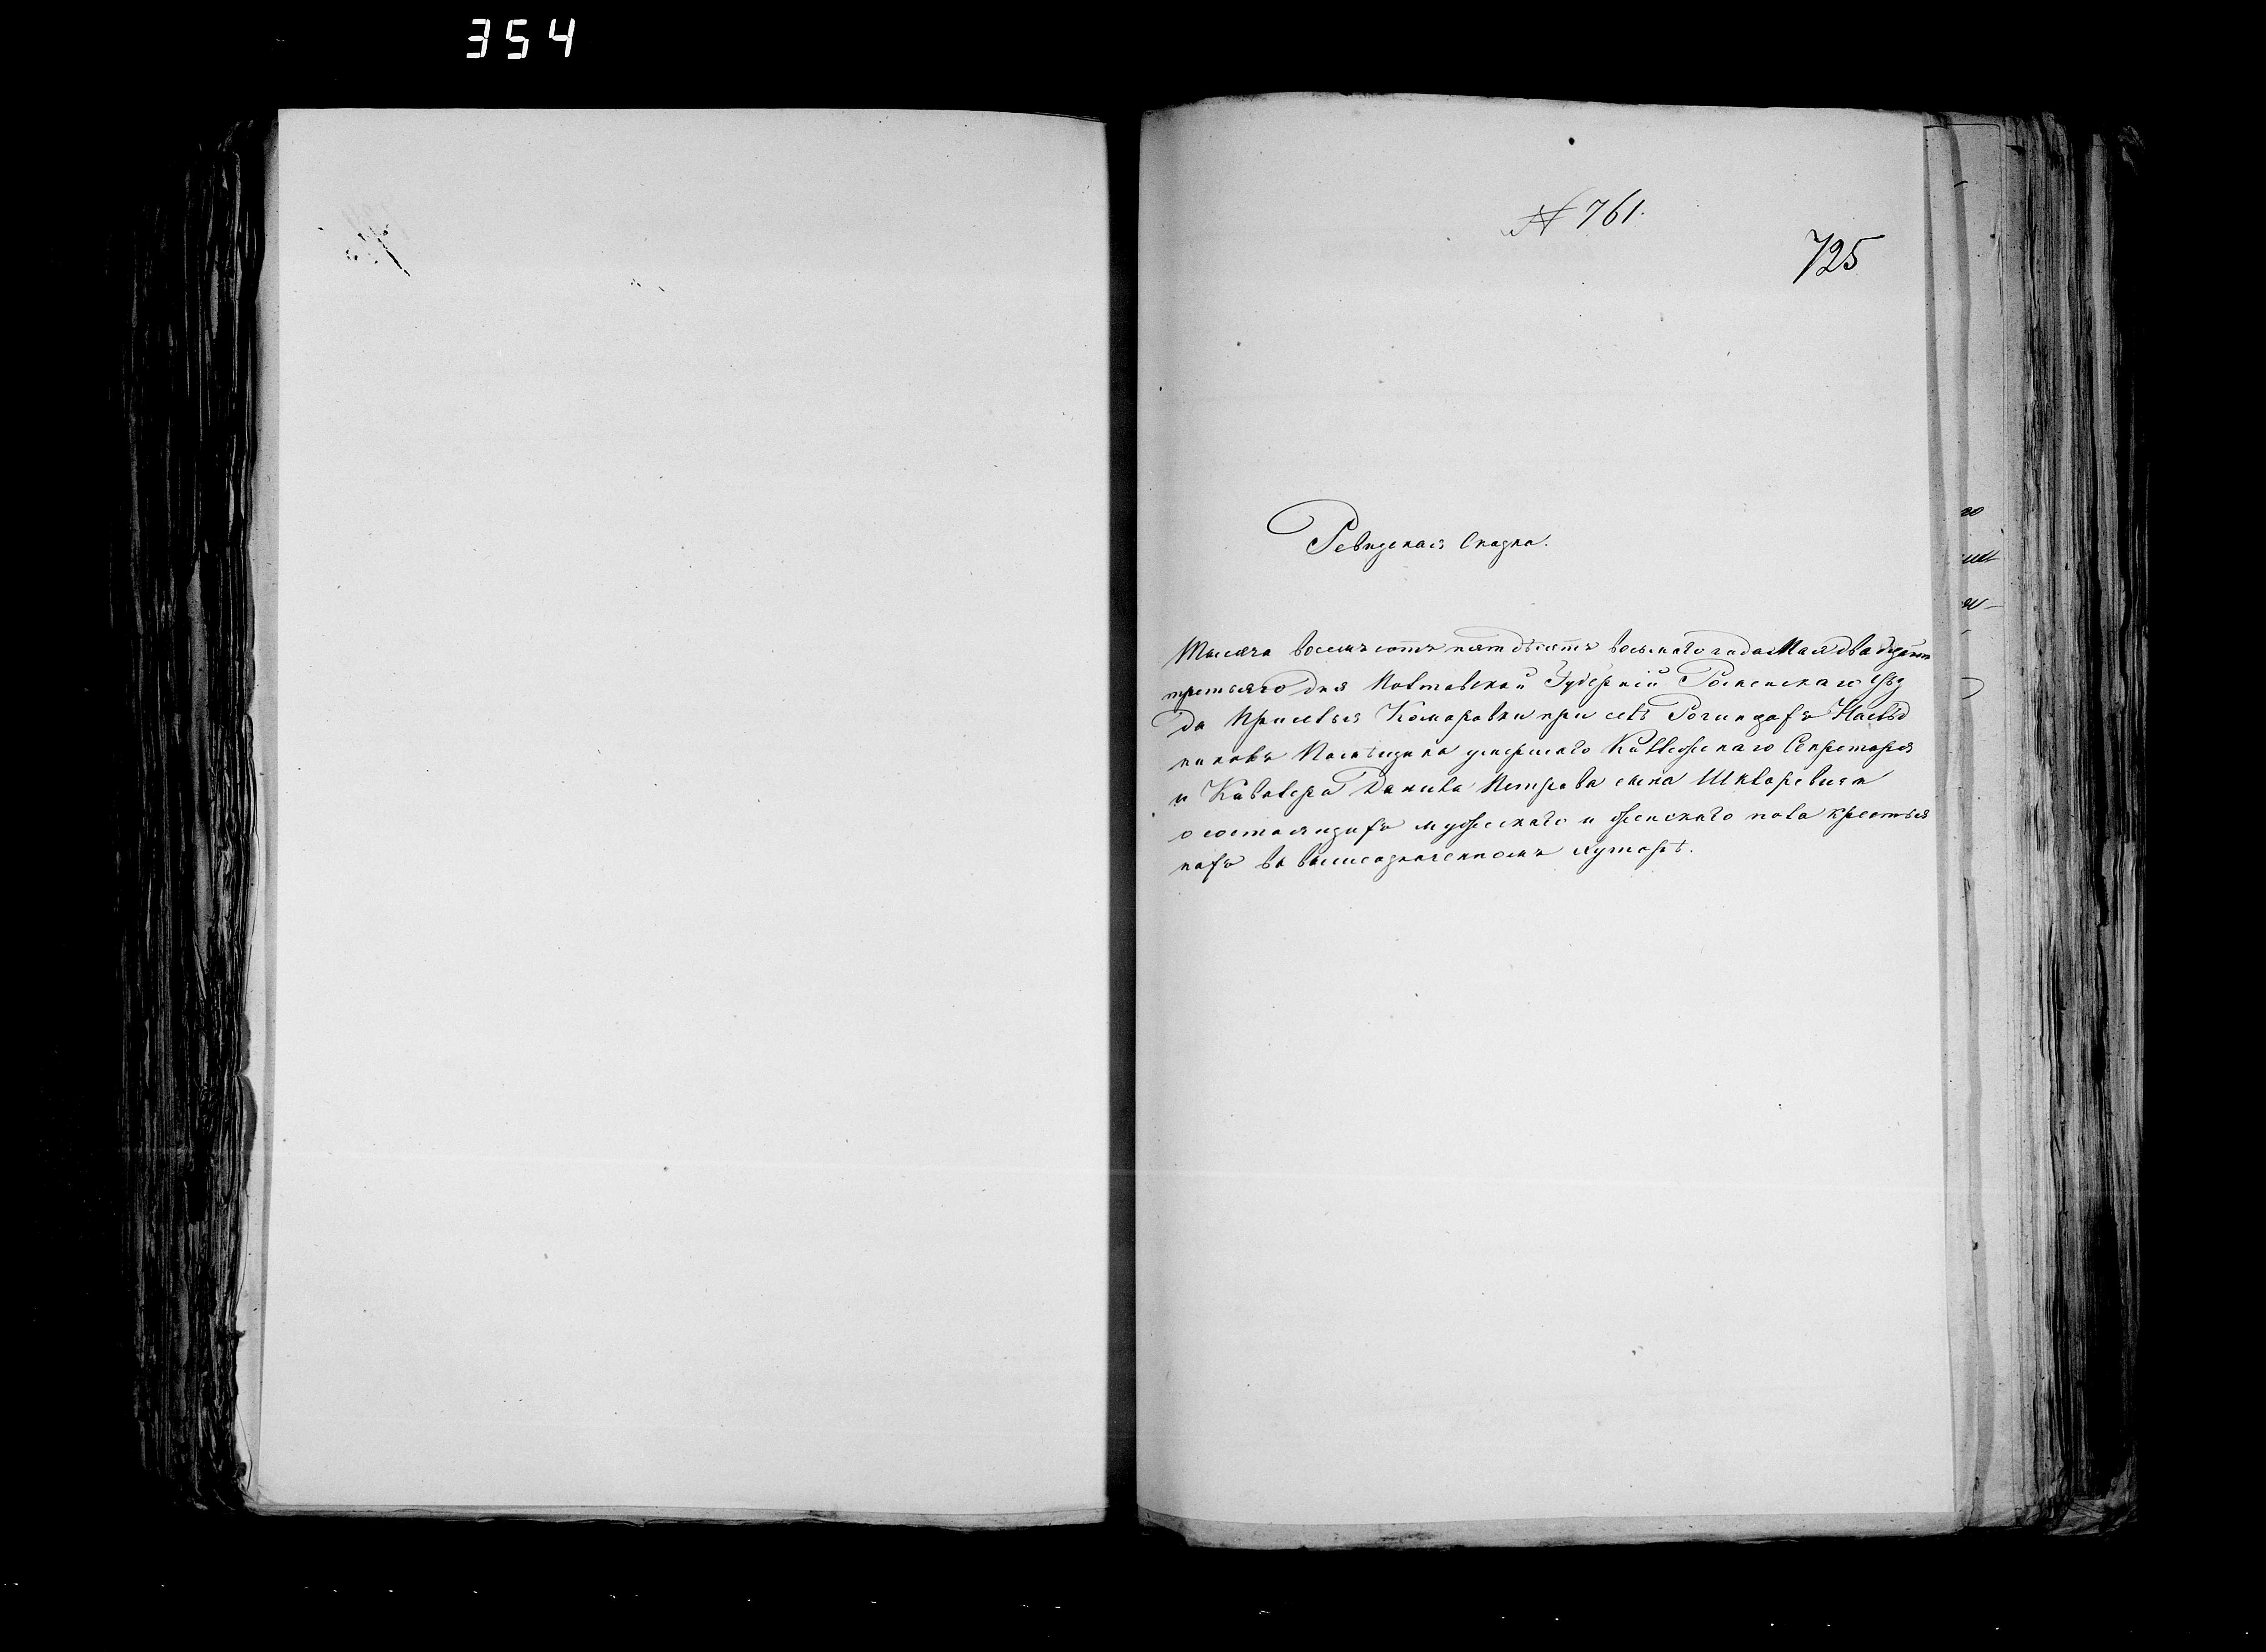 354
№ 761.
725
Ревизская Сказка.
Тысяча восемъ сотъ пятдесятъ восьмаго года Мая двадцать
третьяго дня Полтавской Губерніи Роменскаго уѣз
да Приселья Комаровки при селѣ Рогинцахъ Наслѣд
никовъ Помѣщика умершаго Коллежскаго Секретаря
и Кавалера Данила Петрова сына Шкляревича
о состоящихъ мужескаго и женскаго пола крестья
нахъ въ вышеозначенномъ хуторѣ.